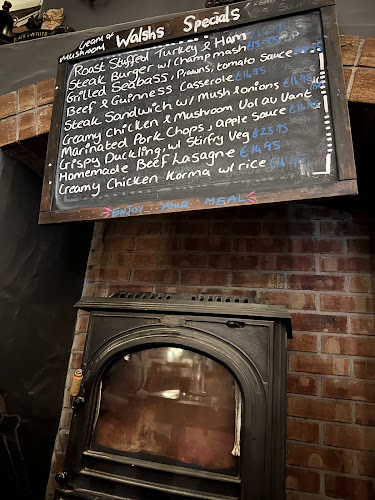 BLACK & WHITE
Cream of
Mushroom
Walshs Specials
Roast Stuffed Turkey & Ham
Steak Burger w/ Champ mash
Grilled Seabass, Prawns, tomato Sauce
Beef & Guinness Casserole €16.95
Steak Sandwich w/ Mush & onions
Creamy Chicken & Mushroom Vol au Vent
Marinated Pork Chops, apple Sauce
Crispy Duckling w/ Stirfry Veg €23.95
Homemade Beef Lasagne €14.95
Creamy Chicken Korma w/ rice
ENJOY YOUR MEAL